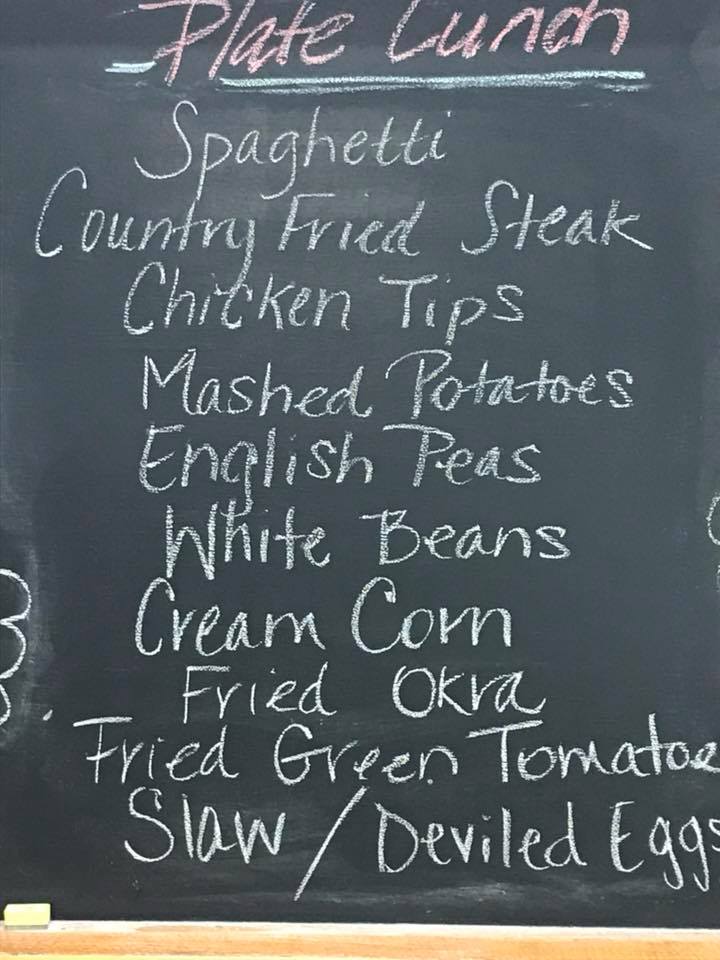 Plate Lunch
Spaghetti
Country Fried Steak
Chicken Tips
Mashed Potatoes
English Peas
White Beans
Cream Corn
Fried Okra
Fried Green Tomatoe
Slaw / Deviled Eggs